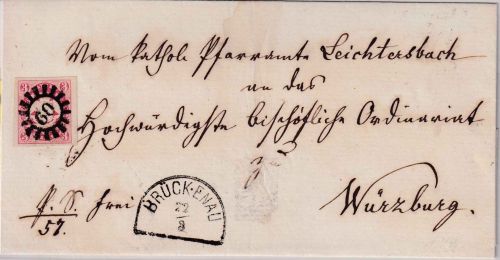 Vom kathol. Pfarramte Leichtersbach
an das
60
Hochwürdigste bischöfliche Ordinariat
zu
Würzburg.
P. S. frei
57.
BRÜCKENAU
22